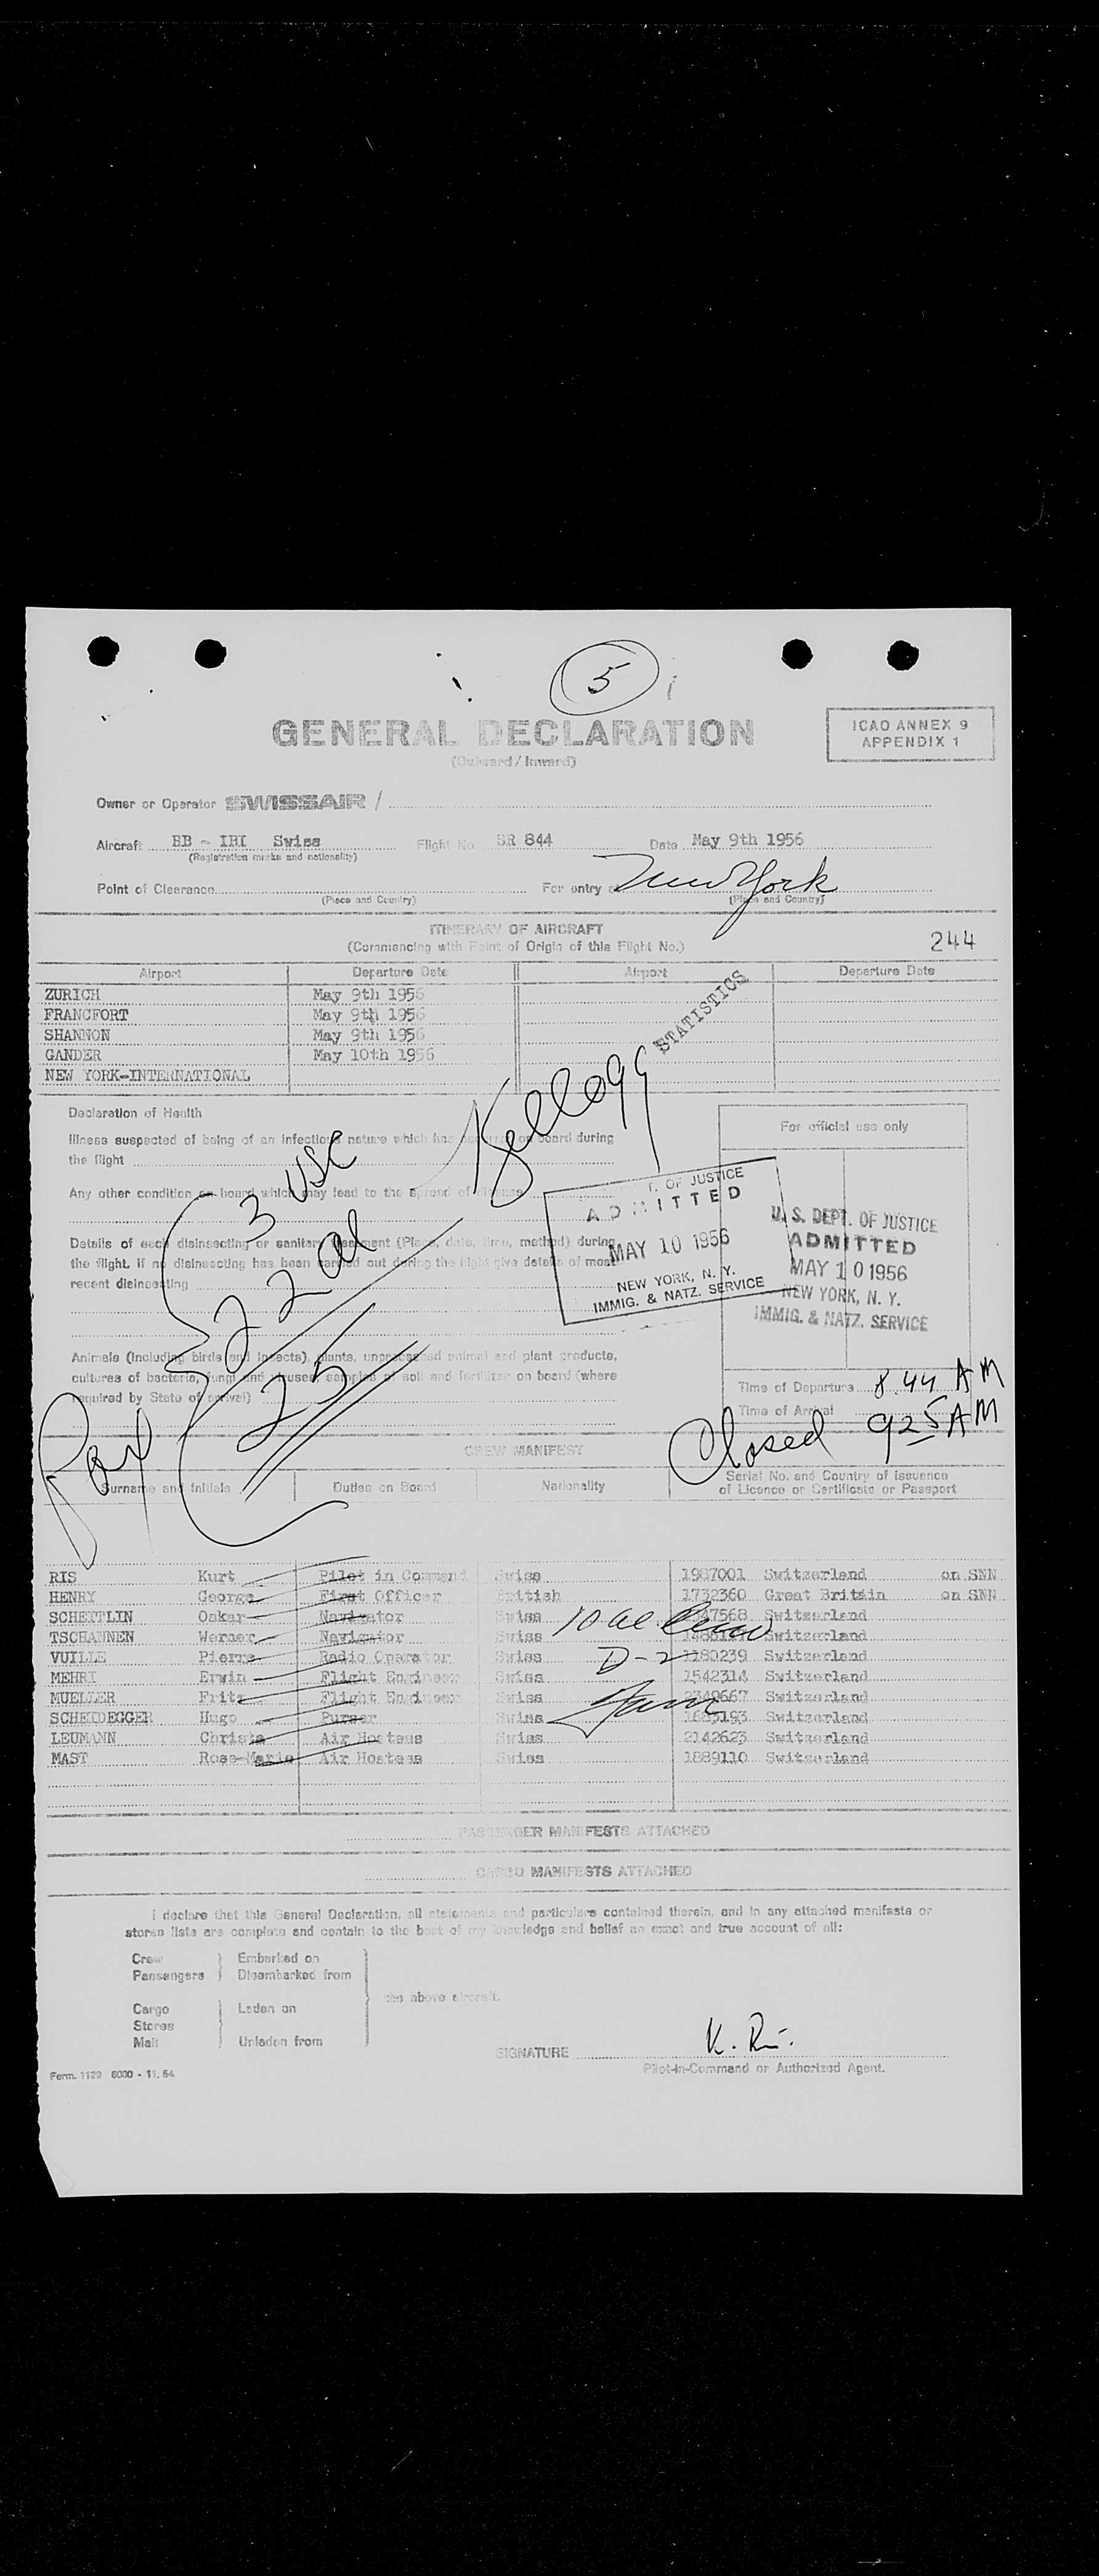 5
GENERAL DECLARATION
(Outward / Inward)
ICAO ANNEX 9
APPENDIX 1
Owner or Operator SWISSAIR /
Aircraft HB - IBI Swiss Flight No. SR 844 Date May 9th 1956
(Registration marks and nationality)
Point of Clearance For entry at New York
(Place and Country) (Place and Country)
ITINERARY OF AIRCRAFT
(Commencing with Point of Origin of this Flight No.)
244
Airport Departure Date Airport Departure Date
ZURICH May 9th 1956
FRANCFORT May 9th 1956
SHANNON May 9th 1956
GANDER May 10th 1956
NEW YORK-INTERNATIONAL
STATISTICS
Kellogg
Declaration of Health
Illness suspected of being of an infectious nature which has occurred on board during
the flight
Any other condition on board which may lead to the spread of disease
Details of each disinsecting or sanitary treatment (Place, date, time, method) during
the flight. If no disinsecting has been carried out during the flight give details of most
recent disinsecting
Animals (including birds and insects), plants, unprocessed animal and plant products,
cultures of bacteria, fungi and viruses, samples of soil and fertilizer on board (where
required by State of arrival)
Pax
3 USC
22 al
25
For official use only
T. OF JUSTICE
ADMITTED
MAY 10 1956
NEW YORK, N. Y.
IMMIG. & NATZ. SERVICE
U. S. DEPT. OF JUSTICE
ADMITTED
MAY 10 1956
NEW YORK, N. Y.
IMMIG. & NATZ. SERVICE
Time of Departure 8.44 AM
Time of Arrival
Closed 925 AM
CREW MANIFEST
Surname and Initials Duties on Board Nationality Serial No. and Country of Issuance
of Licence or Certificate or Passport
RIS Kurt Pilot in Command Swiss 1987001 Switzerland on SNN
HENRY George First Officer British 1732360 Great Britain on SNN
SCHETTLIN Oskar Navigator Swiss 47568 Switzerland
TSCHANNEN Werner Navigator Swiss Switzerland
VUILLE Pierre Radio Operator Swiss 1180239 Switzerland
MEHRI Erwin Flight Engineer Swiss 1542314 Switzerland
MUELLER Fritz Flight Engineer Swiss Switzerland
SCHEIDEGGER Hugo Purser Swiss 1683193 Switzerland
LEUMANN Christa Air Hostess Swiss 2142623 Switzerland
MAST Rose-Marie Air Hostess Swiss 1889110 Switzerland
10 al
D-2
PASSENGER MANIFESTS ATTACHED
CARGO MANIFESTS ATTACHED
I declare that this General Declaration, all statements and particulars contained therein, and in any attached manifests or
stores lists are complete and contain to the best of my knowledge and belief an exact and true account of all:
Crew Embarked on
Passengers Disembarked from
the above aircraft.
Cargo Laden on
Stores
Mail Unladen from
SIGNATURE K. Ris.
Pilot-in-Command or Authorized Agent.
Form. 1129 6000 - 11. 54